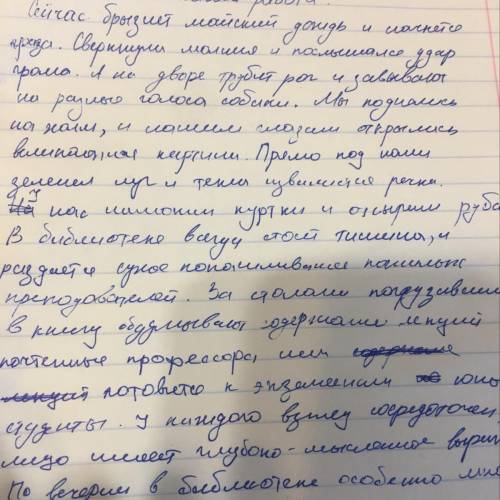 работа.
Сейчас брызнет майский дождь и начнётся
гроза. Сверкнула молния и послышался удар
грома. А на дворе трубят рог и завывают
на разные голоса собаки. Мы поднялись
на холм, и нашим глазам открылись
великая картина. Прямо под нами
зеленел луг и текла извилистая речка.
У нас намокли куртки и отсырели руба
В библиотеке всегда стоит тишина, и
раздается сухое покашливание пожилых
преподователей. За столами погрузившись
в книгу обдумывают содержание лекций
почтенные профессора или
готовится к экзаменам юные
студенты. У каждого взгляд сосредоточен,
лицо имеет глубоко-мысленное выраж
По вечерам в библиотеке особенно мно